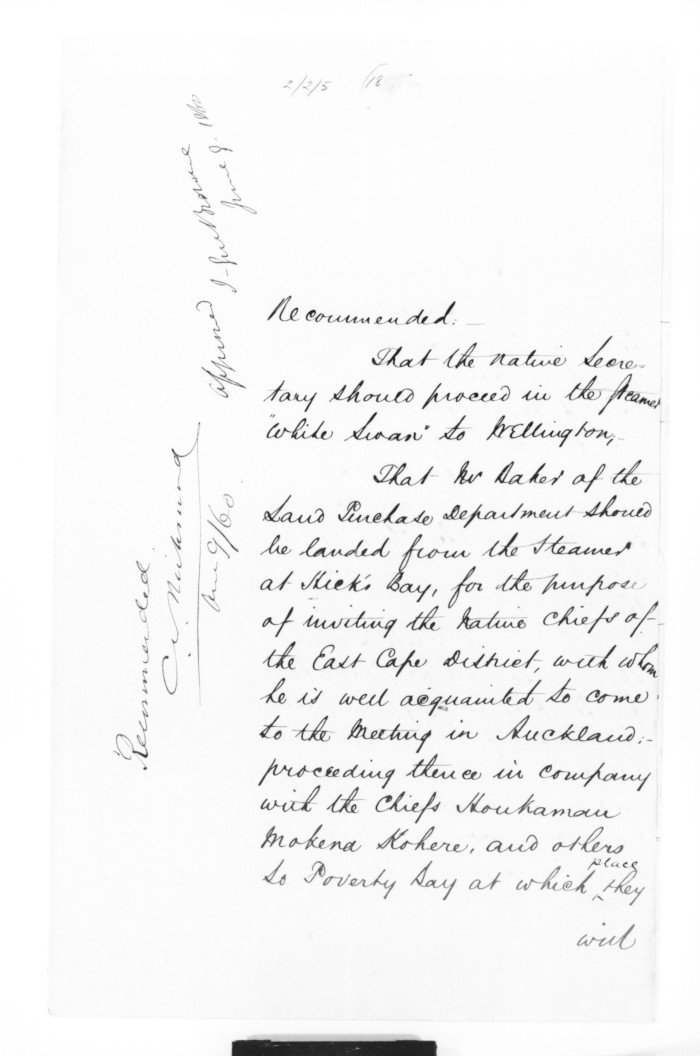 2/2/5 18
Recommended:—
That the Native Secre-
tary should proceed in the Steamer
"White Swan" to Wellington,—
That Mr Baker of the
Land Purchase Department should
be landed from the Steamer
at Hick's Bay, for the purpose
of inviting the Native Chiefs of
the East Cape District, with whom
he is well acquainted to come
to the Meeting in Auckland:—
proceeding thence in company
with the Chiefs Houkamau
Mokena Kohere, and others
to Poverty Bay at which place they
will
approved
T. Gore Browne
June 9. 1860
Recommended
C. W. Richmond
June 9/60